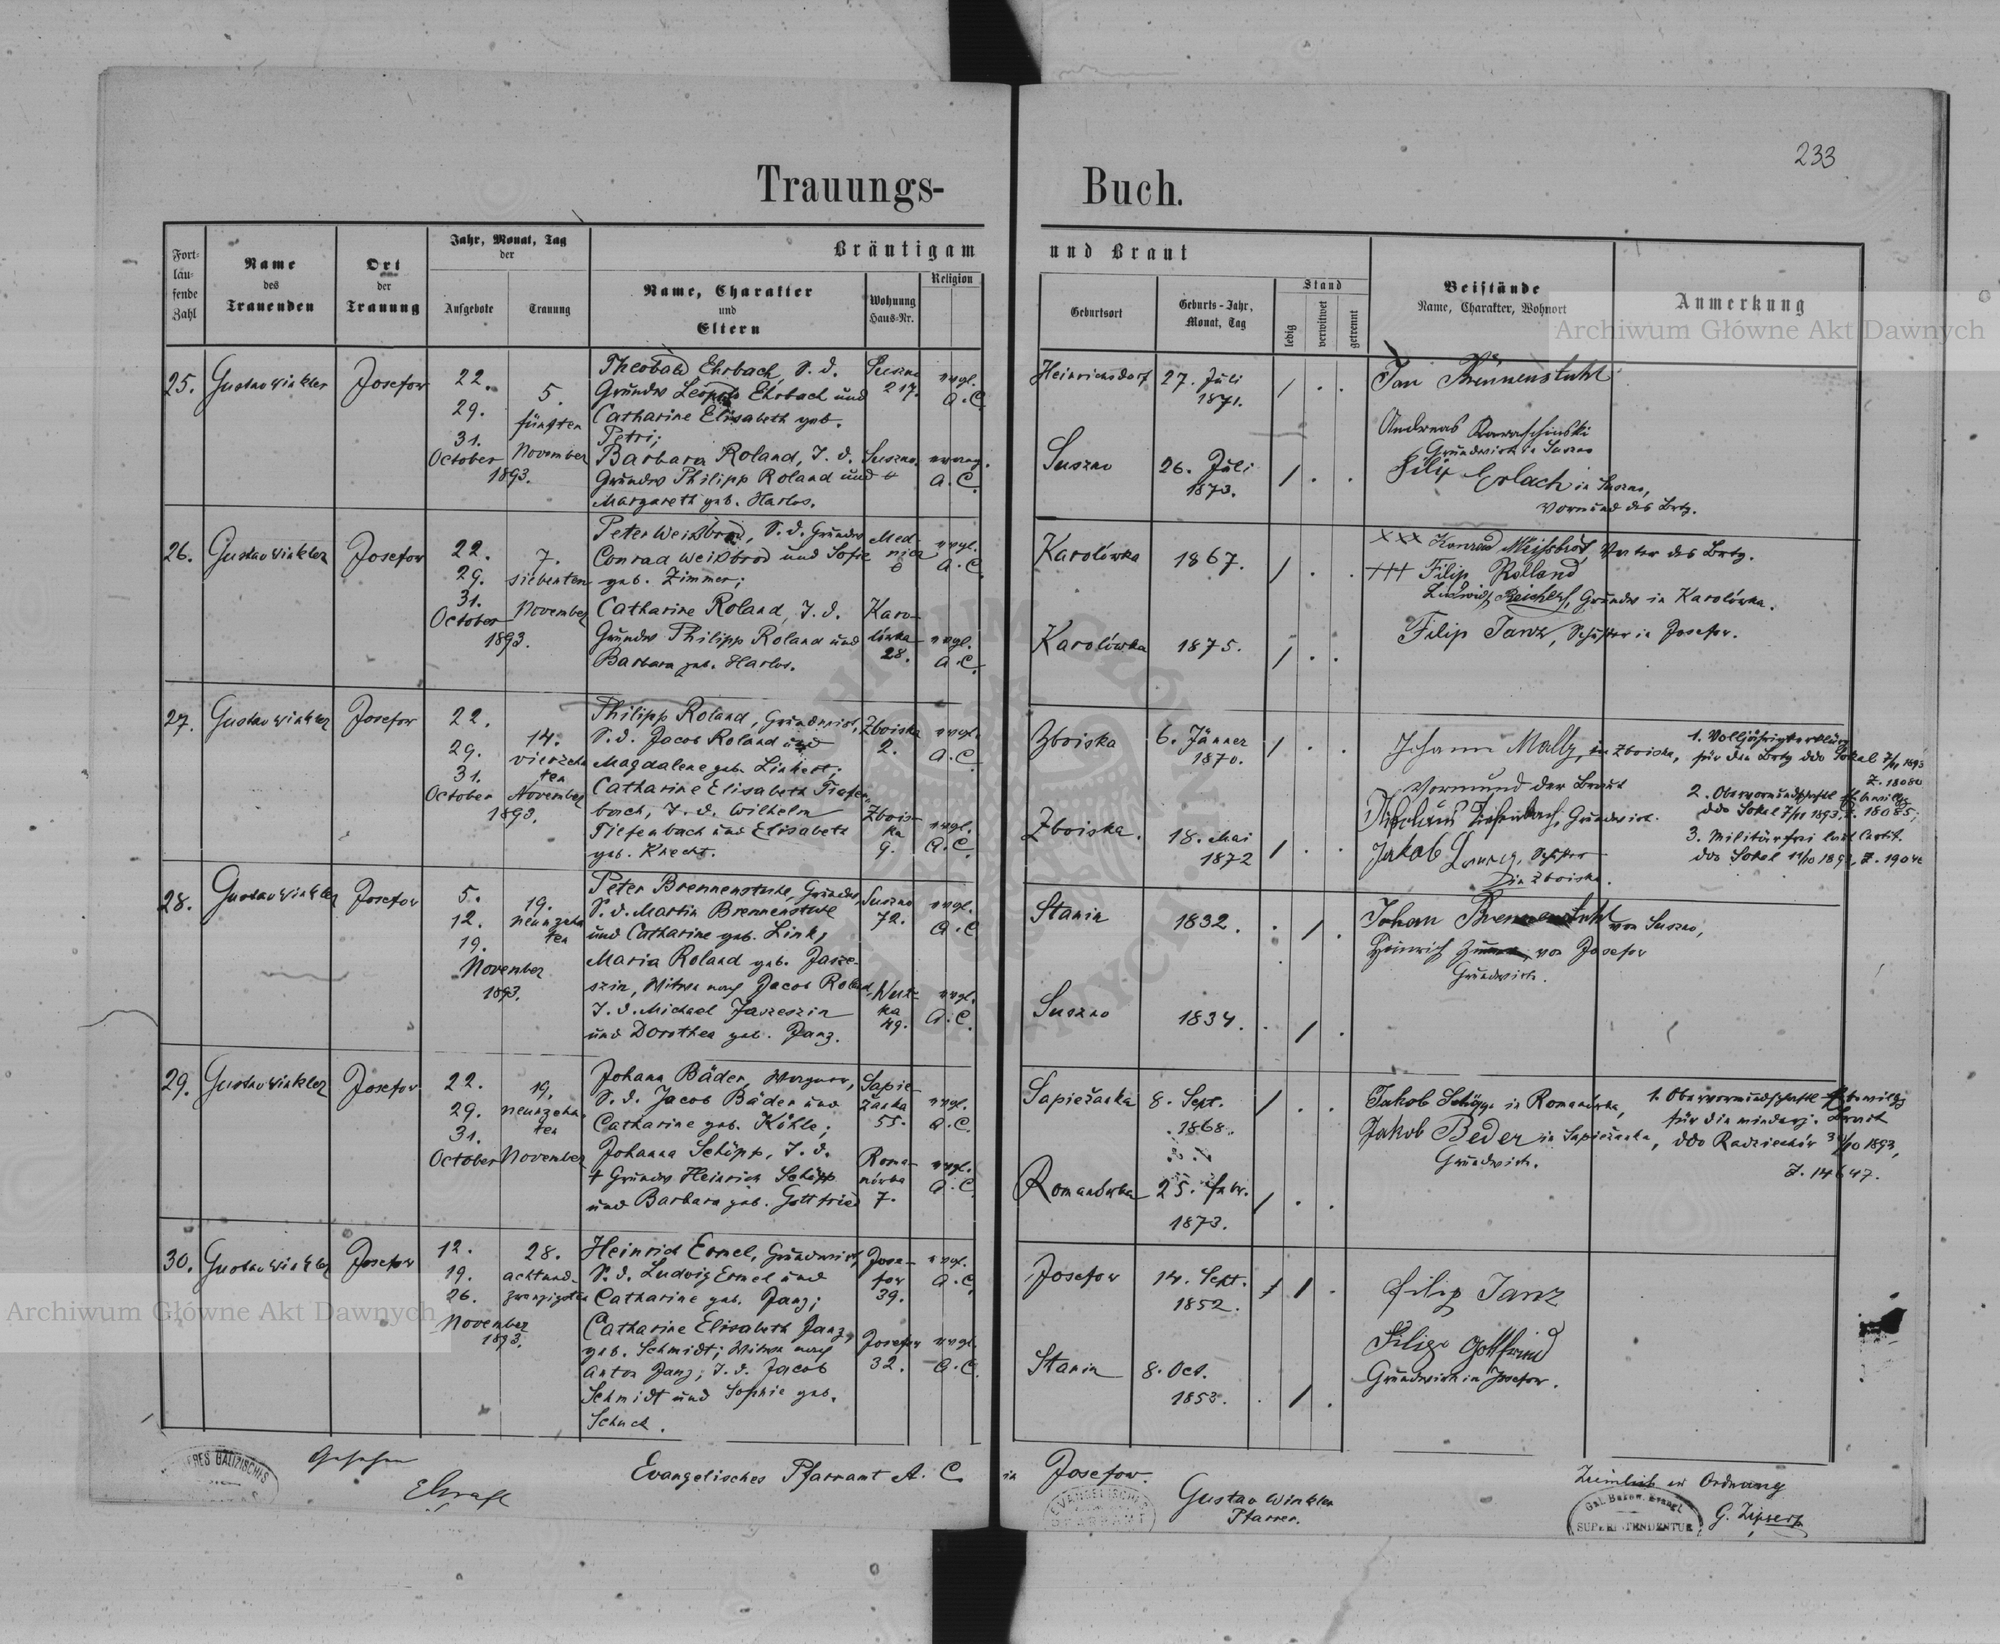 233
Trauungs-Buch.
Fort-
lau-
fende
Zahl
Name
des
Trauenden
Ort
der
Trauung
Jahr, Monat, Tag
der
Aufgebote
Trauung
Bräutigam und Braut
Name, Charakter
und
Eltern
Wohnung
Haus-Nr.
Religion
Geburtsort
Geburts-Jahr,
Monat, Tag
Stand
ledig
verwitwet
getrennt
Beistände
Name, Charakter, Wohnort
Anmerkung
Archiwum Główne Akt Dawnych
25. Gustav Winkler Josefow
22.
29.
31.
October
5.
fünften
November
1893.
Theobald Ehrbach, S. d.
Grundws Leopold Ehrbach und
Catharine Elisabeth geb.
Petri;
Barbara Roland, T. d.
Grundws Philipp Roland und
Margareth geb. Harlos.
Suszno
217.
evgl.
A. C.
Suszno
evang.
A. C.
Heinrichsdorf 27. Juli
1871.
Suszno 26. Juli
1873.
Jan Brennenstuhl
Andreas Karaschinski
Grundwirth in Suszno
Filip Erlach in Suszno,
Vormund des Brtg.
26. Gustav Winkler Josefow
22.
29.
31.
October
7.
siebenten
November
1893.
Peter Weissbrod, S. d. Grundws
Conrad Weissbrod und Sofie
geb. Zimmer;
Catharine Roland, T. d.
Grundws Philipp Roland und
Barbara geb. Harlos.
Med-
nica
6
evgl.
A. C.
Karo-
lówka
28.
evgl.
A. C.
Karolówka 1867.
Karolówka 1875.
XXX Konrad Weissbrod, Vater des Brtg.
+++ Filip Rolland
Ludwig Reichert, Grundws in Karolówka.
Filip Janz, Schuster in Josefow.
27. Gustav Winkler Josefow
22.
29.
31.
October
14.
vierzehn
ten
November
1893.
Philipp Roland, Grundwirt,
S. d. Jacob Roland und
Magdalene geb. Linkert;
Catharine Elisabeth Tiefen-
bach, T. d. Wilhelm
Tiefenbach und Elisabeth
geb. Knecht.
Zboiska
2.
evgl.
A. C.
Zbois-
ka
9.
evgl.
A. C.
Zboiska 6. Jänner
1870.
Zboiska. 18. Mai
1872
Johann Mally, in Zboiska,
Vormund der Braut
Tiefenbach, Grundwirt.
Jakob
in Zboiska.
1. Volljährigkerklärg
für den Brtg ddo Sokal 7/11 1893
Z. 18080
2. Obervormundschaftl. Ehebewillg
ddo Sokal 7/11 1893, Z. 18085;
3. Militärfrei laut Certif.
ddo Sokal 11/10 1892, Z. 19040
28. Gustav Winkler Josefow
5.
12.
19.
November
1893.
19.
neunzehn
ten
Peter Brennenstuhl, Grundws,
S. d. Martin Brennenstuhl
und Catharine geb. Link;
Maria Roland geb. Jasze-
szin, Witwe nach Jacob Roland,
T. d. Michael Jaszeszin
und Dorothea geb. Janz.
Suszno
72.
evgl.
A. C.
ka
49.
evgl.
A. C.
Stanin 1832.
Suszno 1834.
Johan Brennenstuhl von Suszno,
Heinrich Zimmer, von Josefov
Grundwirth.
29. Gustav Winkler Josefow
22.
29.
31.
October
19.
neunzehn
ten
November
Johann Bäder, Wagner,
S. d. Jacob Bäder und
Catharine geb. Köhle;
Johanna Schöpp, T. d.
+ Grundws Heinrich Schöpp
und Barbara geb. Gottfried
Sapie-
żanka
55.
evgl.
A. C.
Roma-
nówka
7.
evgl.
A. C.
Sapieżanka 8. Sept.
1868.
Romanówka 25. Febr.
1873.
Jakob Schöpp in Romanówka,
Jakob Beder in Sapieżanka,
Grundwirth.
1. Obervormundschaftl. Ehebewillg
für die minderj. Braut
ddo Radziechów 31/10 1893,
Z. 14647.
30. Gustav Winkler Josefow
12.
19.
26.
November
1893.
28.
achtund-
zwanzigsten
Heinrich Ernel, Grundwirt,
S. d. Ludwig Ernel und
Catharine geb. Janz;
Catharine Elisabeth Janz,
geb. Schmidt; Witwe nach
Anton Janz; T. d. Jacob
Schmidt und Sophie geb.
Schuck.
Jose-
fow
39.
evgl.
A. C.
Josefow
32.
evgl.
A. C.
Josefow 14. Sept.
1852.
Stanin 8. Oct.
1853.
Filip Janz
Filip Gottfried
Grundwirth in Josefow.
Archiwum Główne Akt Dawnych
GALIZISCHES
Gesehen
Evangelisches Pfarramt A. C. in Josefow.
EVANGELISCHES
PFARRAMT
Gustav Winkler
Pfarrer.
Ziemlich in Ordnung
Gal. Bukow. Evangl.
SUPERINTENDENTUR
G. Zipser